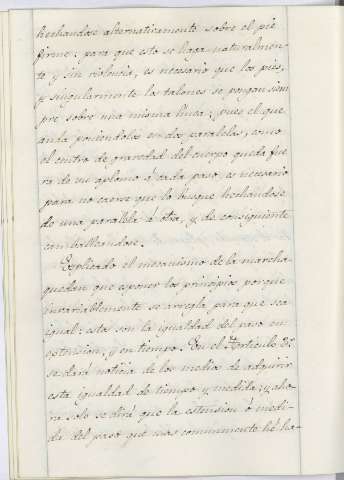 hechandose alternativamente sobre el pie
firme: para que esto se haga naturalmen-
te y sin violencia, es necesario que los pies,
y singularmente los talones se pongan siem
pre sobre una misma linea; pues el que
anda poniendolos en dos paralelas, como
el centro de gravedad del cuerpo queda fue
ra de su aplomo á cada paso, es necesario
para no caerse que lo busque hechandose
de una paralela á otra, y de consiguiente
cambalLeandose.
Explicado el mecanismo de la marcha
quedan que exponer los principios porque
invariablemente se arregla para que sea
igual: estos son la igualdad del paso en
estension, y en tiempo. En el Articulo 3º
se dará noticia de los medios de adquirir
esta igualdad de tiempo y medida; y aho-
ra solo se dirá que la estension ó medi-
da del paso que mas comunmente hé ha-